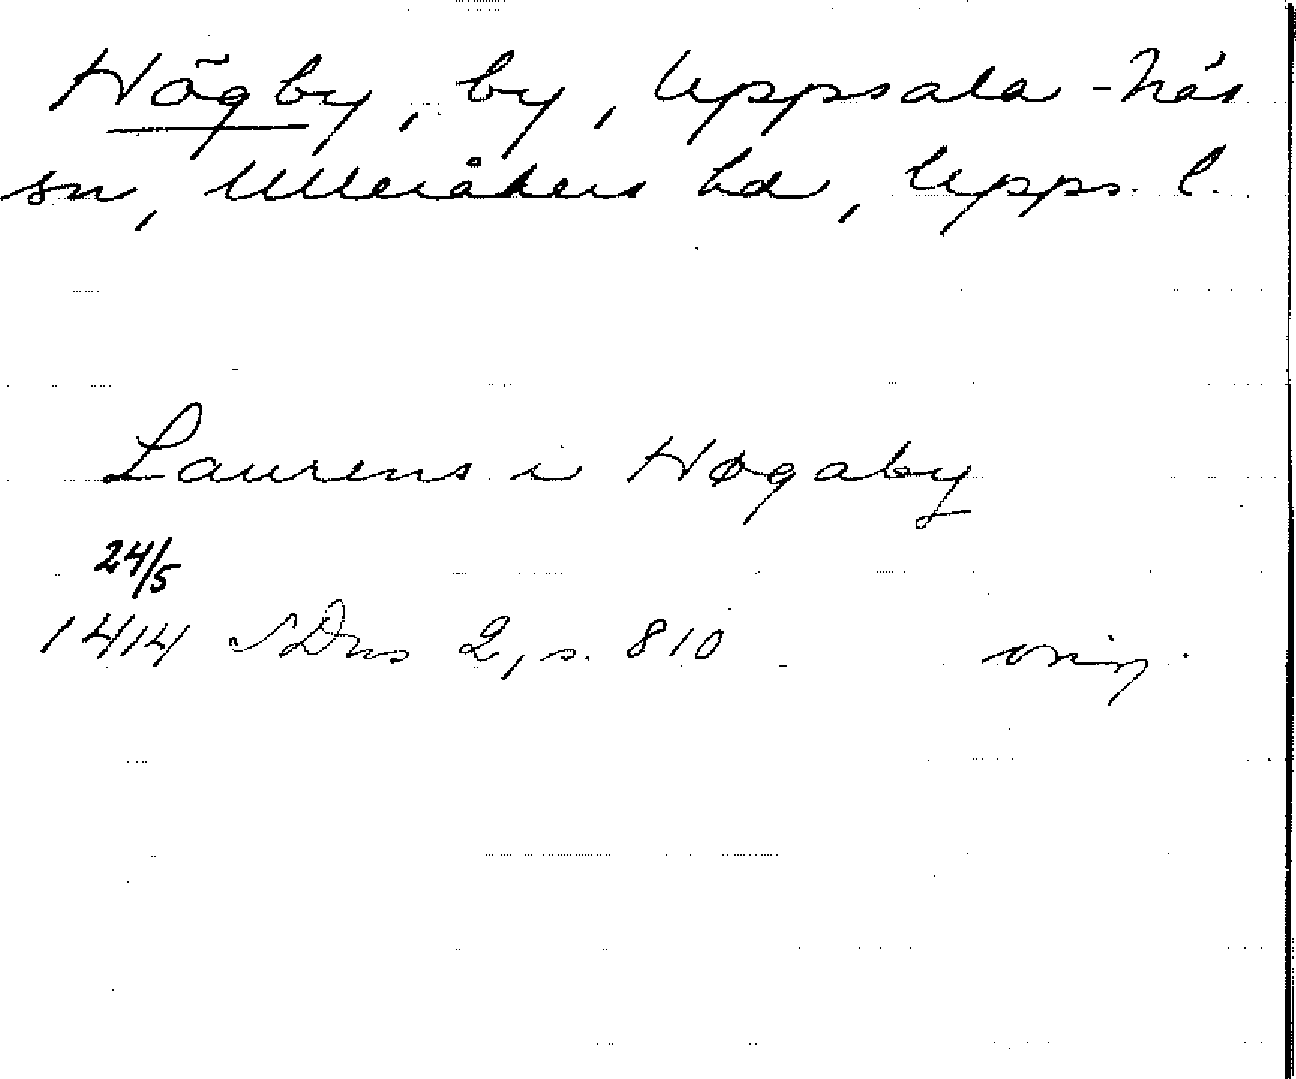 Högby, by, Uppsala-Näs
sn, Ulleråkers hd, Upps. l.
Laurens i Høgaby
24/5
1414 SDns 2, s. 810 orig.